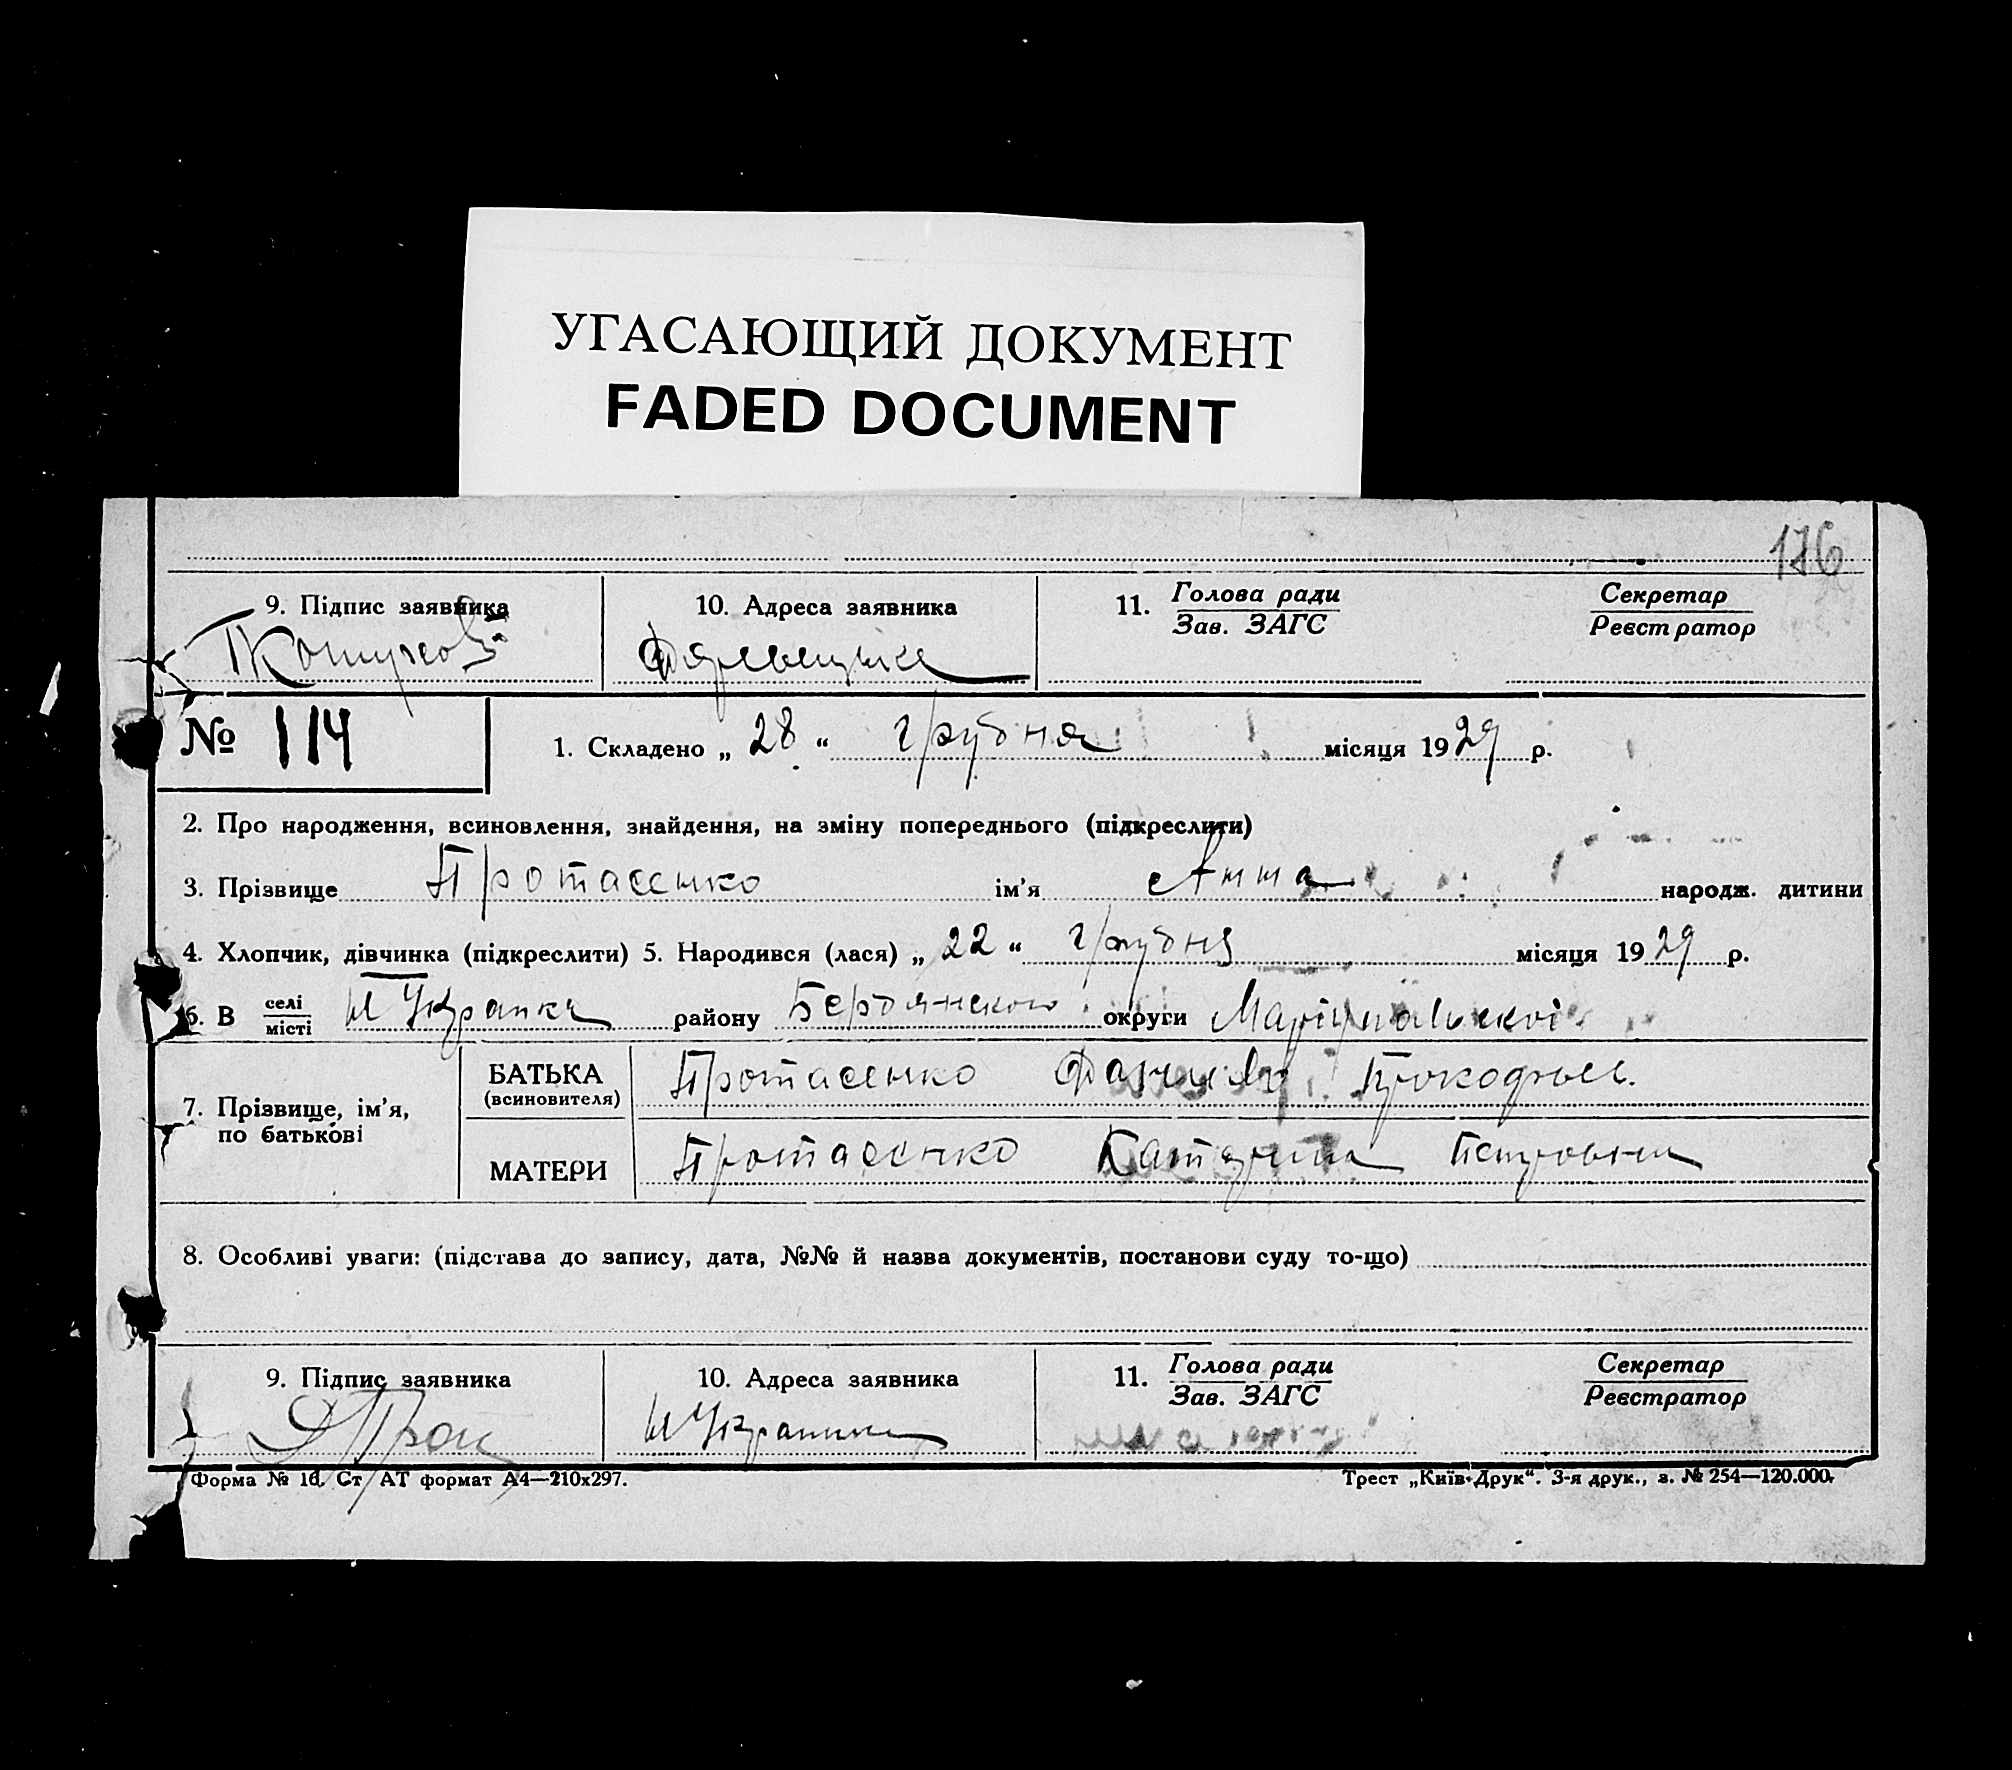 УГАСАЮЩИЙ ДОКУМЕНТ
FADED DOCUMENT
176
9. Підпис заявника 10. Адреса заявника 11. Голова ради Секретар
Зав. ЗАГС Реєстратор
№ 114 1. Складено „ 28 “ грудня місяця 1929 р.
2. Про народження, всиновлення, знайдення, на зміну попереднього (підкреслити)
3. Прізвище Протасенко ім'я Анна народж. дитини
4. Хлопчик, дівчинка (підкреслити) 5. Народився (лася) „ 22 “ грудня місяця 1929 р.
6. В селі району Бердянского округи Маріупольскої
місті
7. Прізвище, ім'я, по батькові
БАТЬКА Протасенко Прокофьев.
(всиновителя)
МАТЕРИ Протасенко Катерина Петровна
8. Особливі уваги: (підстава до запису, дата, №№ й назва документів, постанови суду то-що)
9. Підпис заявника 10. Адреса заявника 11. Голова ради Секретар
Зав. ЗАГС Реєстратор
Форма № 1d. Ст АТ формат А4—210x297. Трест „Київ-Друк“. 3-я друк., з. № 254—120.000.